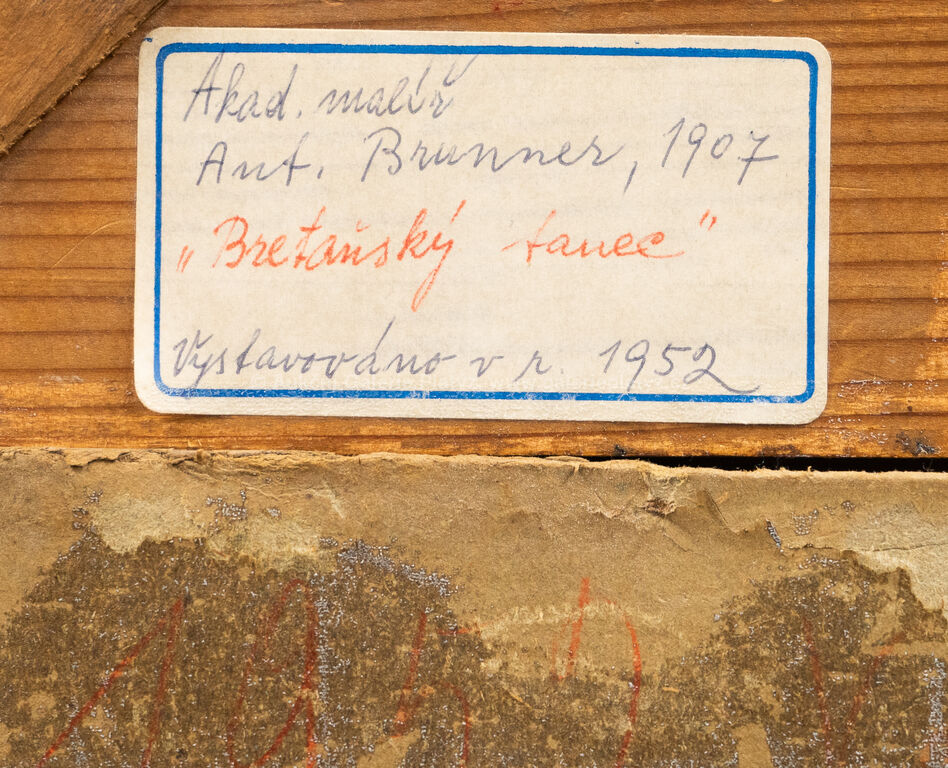 Akad. malíř
Ant. Brunner, 1907
„Bretaňský tanec"
Vystavováno v r. 1952